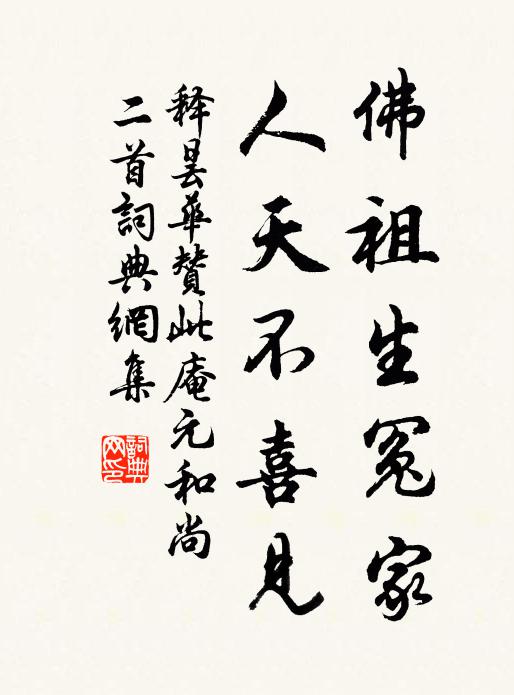 佛祖生冤家
人天不喜見
释曇華贊此庵元和尚
二首詞典網集
詞典网印